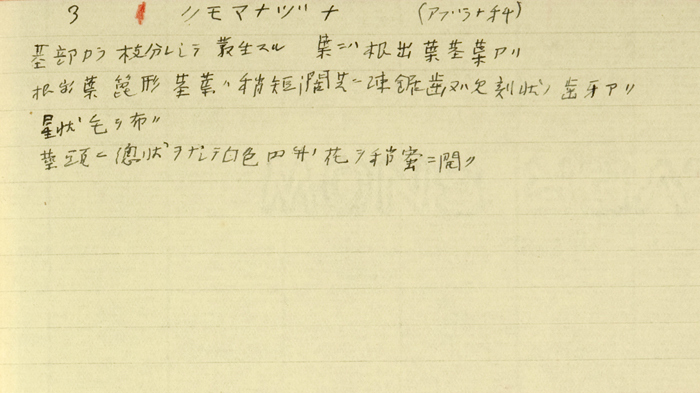 3 ソモマナヅナ (アブラナ科)
基部カラ枝分レシテ叢生スル 葉ニハ根出葉茎葉アリ
根出葉箆形 茎葉ハ稍短ク 共ニ疎鋸歯又ハ欠刻状ノ歯牙アリ
星状毛ヲ布ク
茎頂ニ総状ヲナシテ白色四弁ノ花ヲ稍蜜ニ開ク